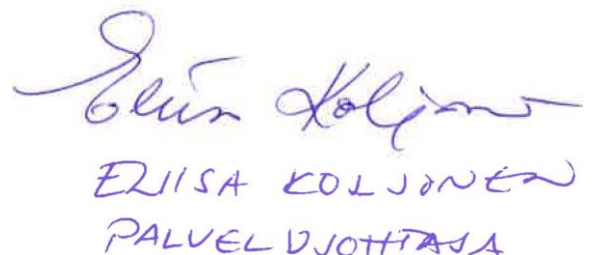 Eliisa Koljonen
ELIISA KOLJONEN
PALVELUJOHTAJA